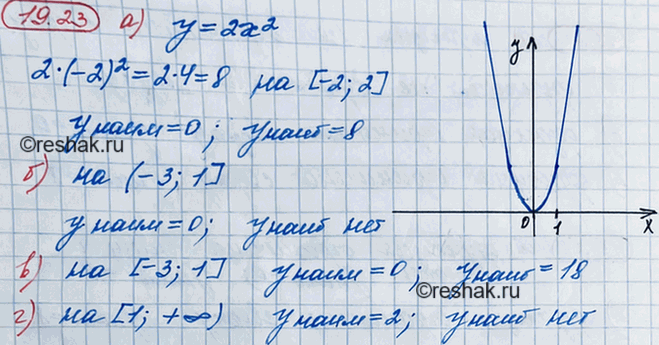 19.23 а) y = 2x²
2·(-2)² = 2·4 = 8 на [-2; 2]
y наим = 0; y наиб = 8
©reshak.ru
б) на (-3; 1]
y наим = 0; y наиб нет
в) на [-3; 1] y наим = 0; y наиб = 18
©reshak.ru
г) на [1; +∞) y наим = 2; y наиб нет
y
0 1 x